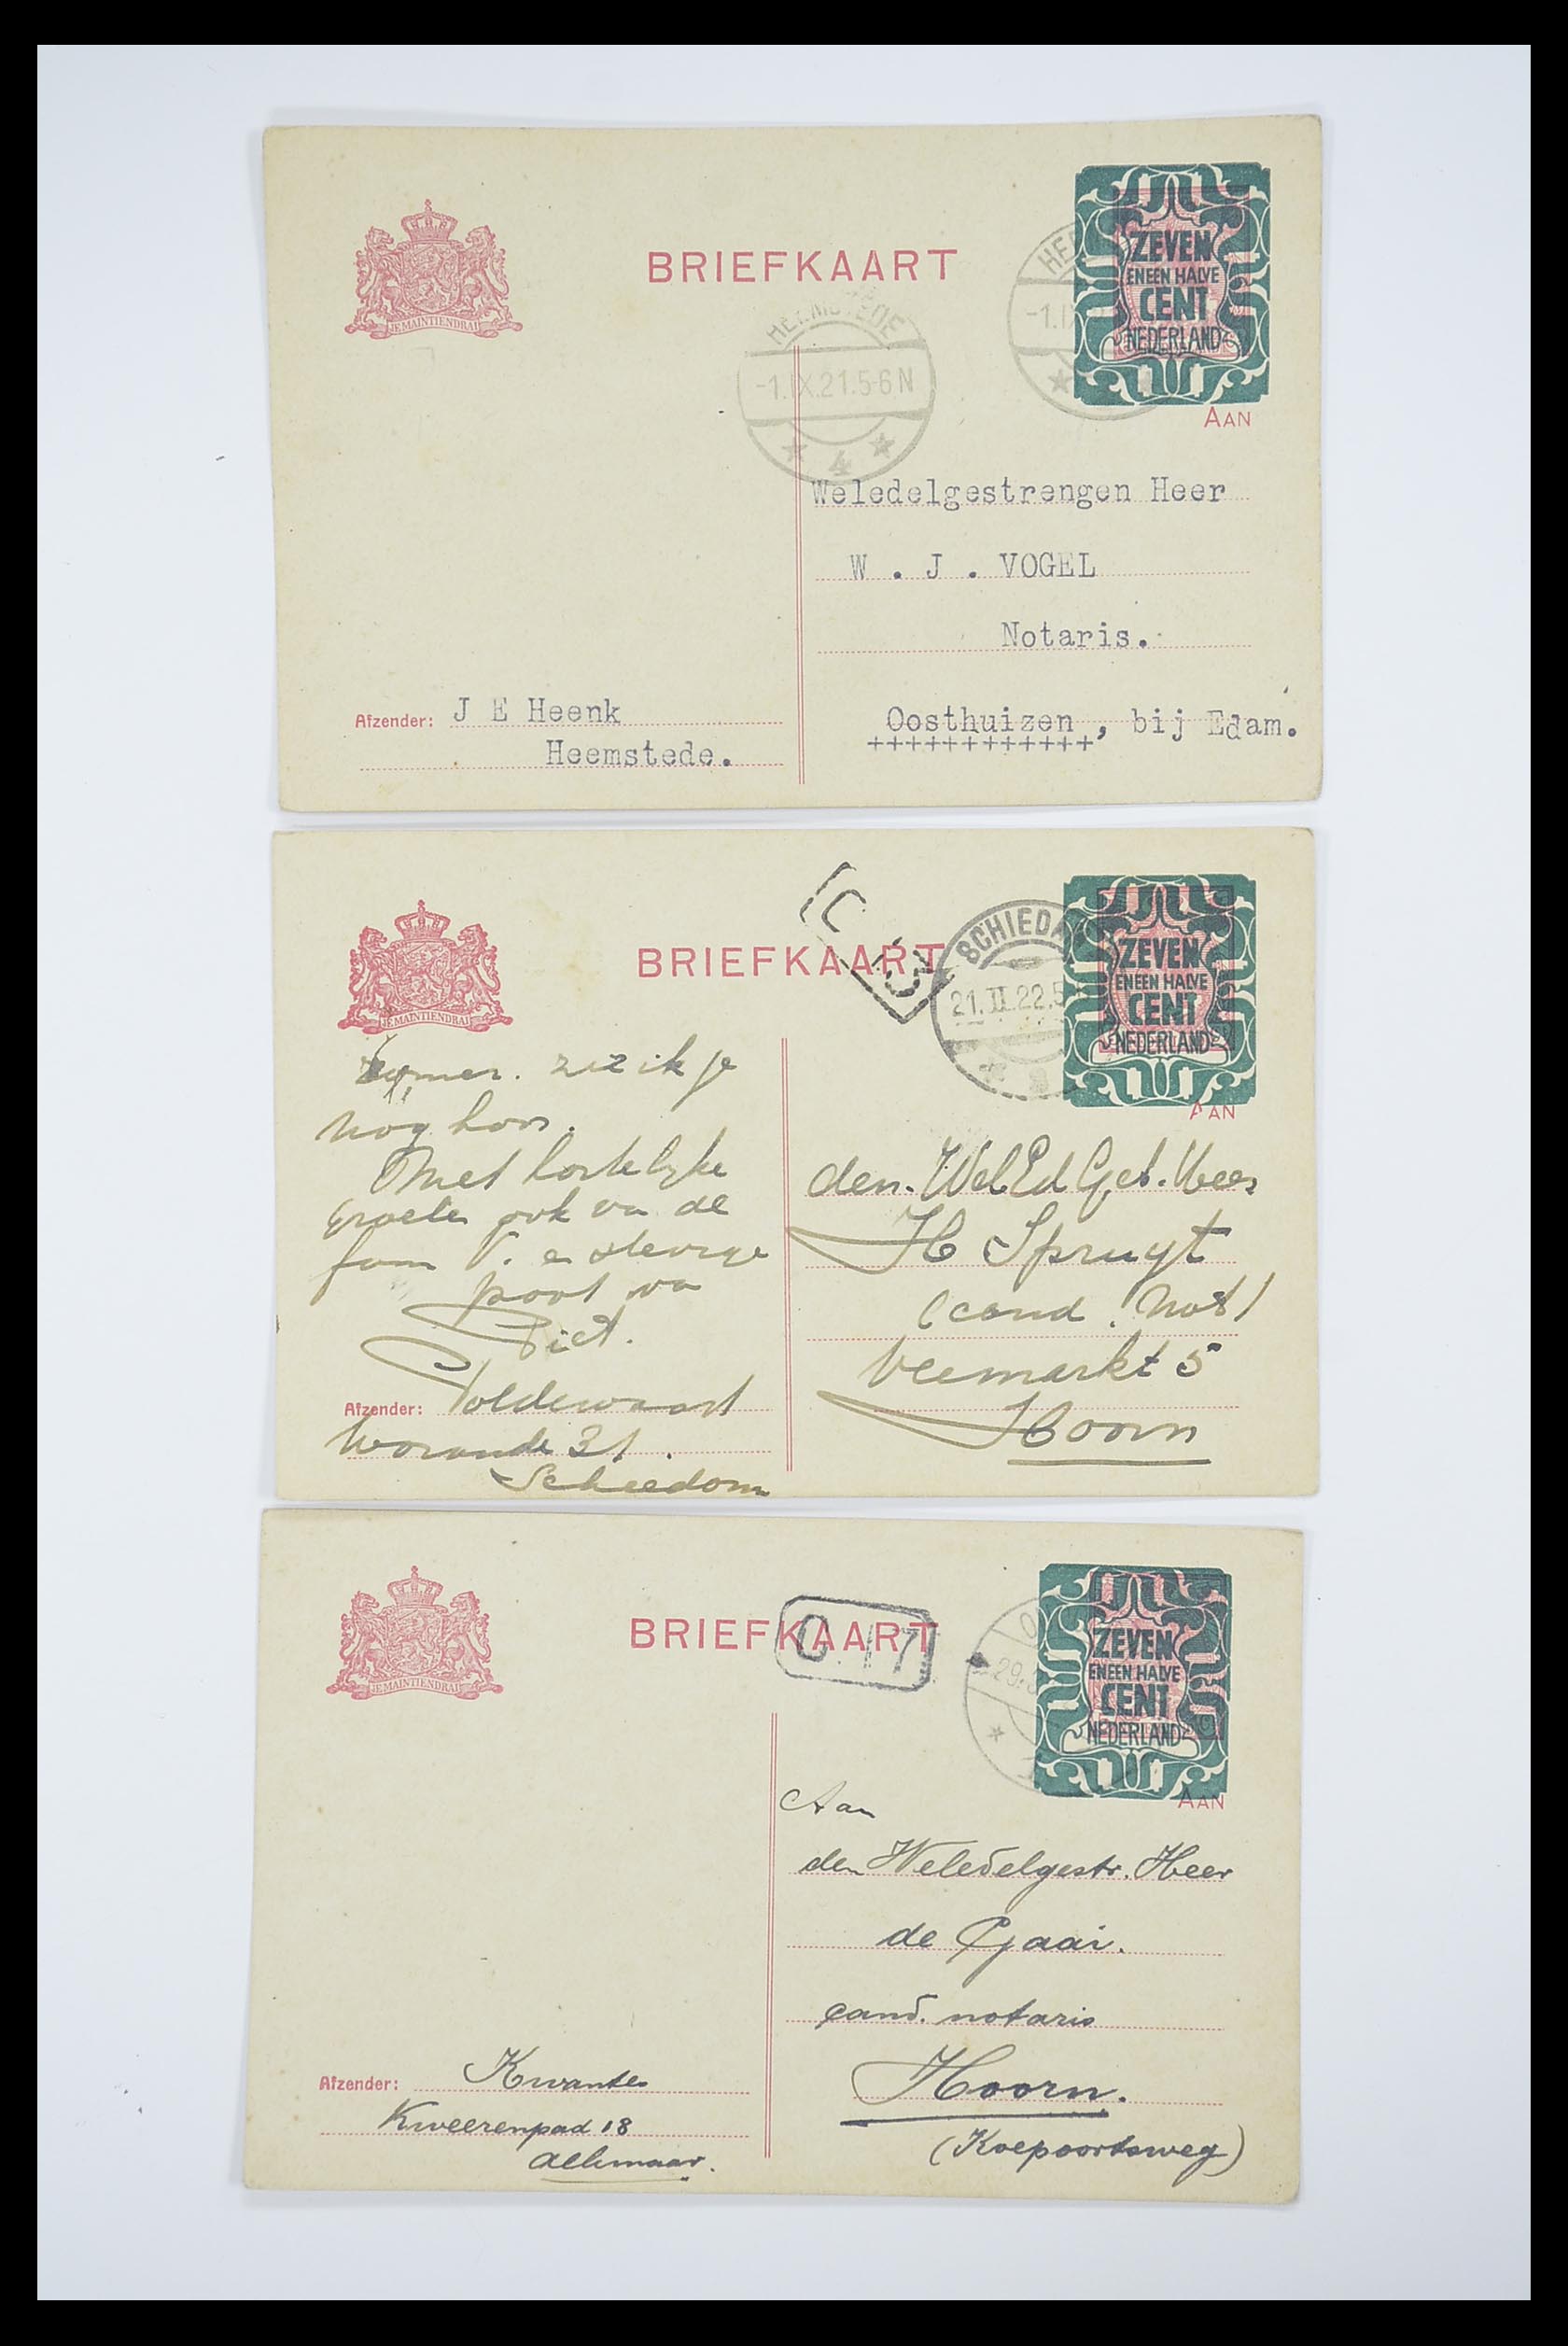 JE MAINTIENDRAI
BRIEFKAART
HEEMSTEDE
-1.IX.21.5-6N
4
-1.IX
ZEVEN
EN EEN HALVE
CENT
NEDERLAND
AAN
Weledelgestrengen Heer
W . J . VOGEL
Notaris.
Oosthuizen , bij Edam.
++++++++++++
Afzender: J E Heenk
Heemstede.
JE MAINTIENDRAI
BRIEFKAART
SCHIEDA
21.II.22.5
ZEVEN
EN EEN HALVE
CENT
NEDERLAND
AAN
zie ik je
nog hoor.
Met hartelijke
groeten ook van de
fam V. en stevige
poot van
Piet.
Afzender: Poldervaart
31.
Schiedam
den WelEdGeb. Heer
H Spruyt
(cand. Not)
Veemarkt 5
Hoorn
JE MAINTIENDRAI
BRIEFKAART
C.17
29.
ZEVEN
EN EEN HALVE
CENT
NEDERLAND
AAN
Aan
den Weledelgestr. Heer
de Gaai.
cand. notaris
Hoorn.
(Koepoortsweg)
Afzender: Kwantes
Kweerenpad 18
Alkmaar.